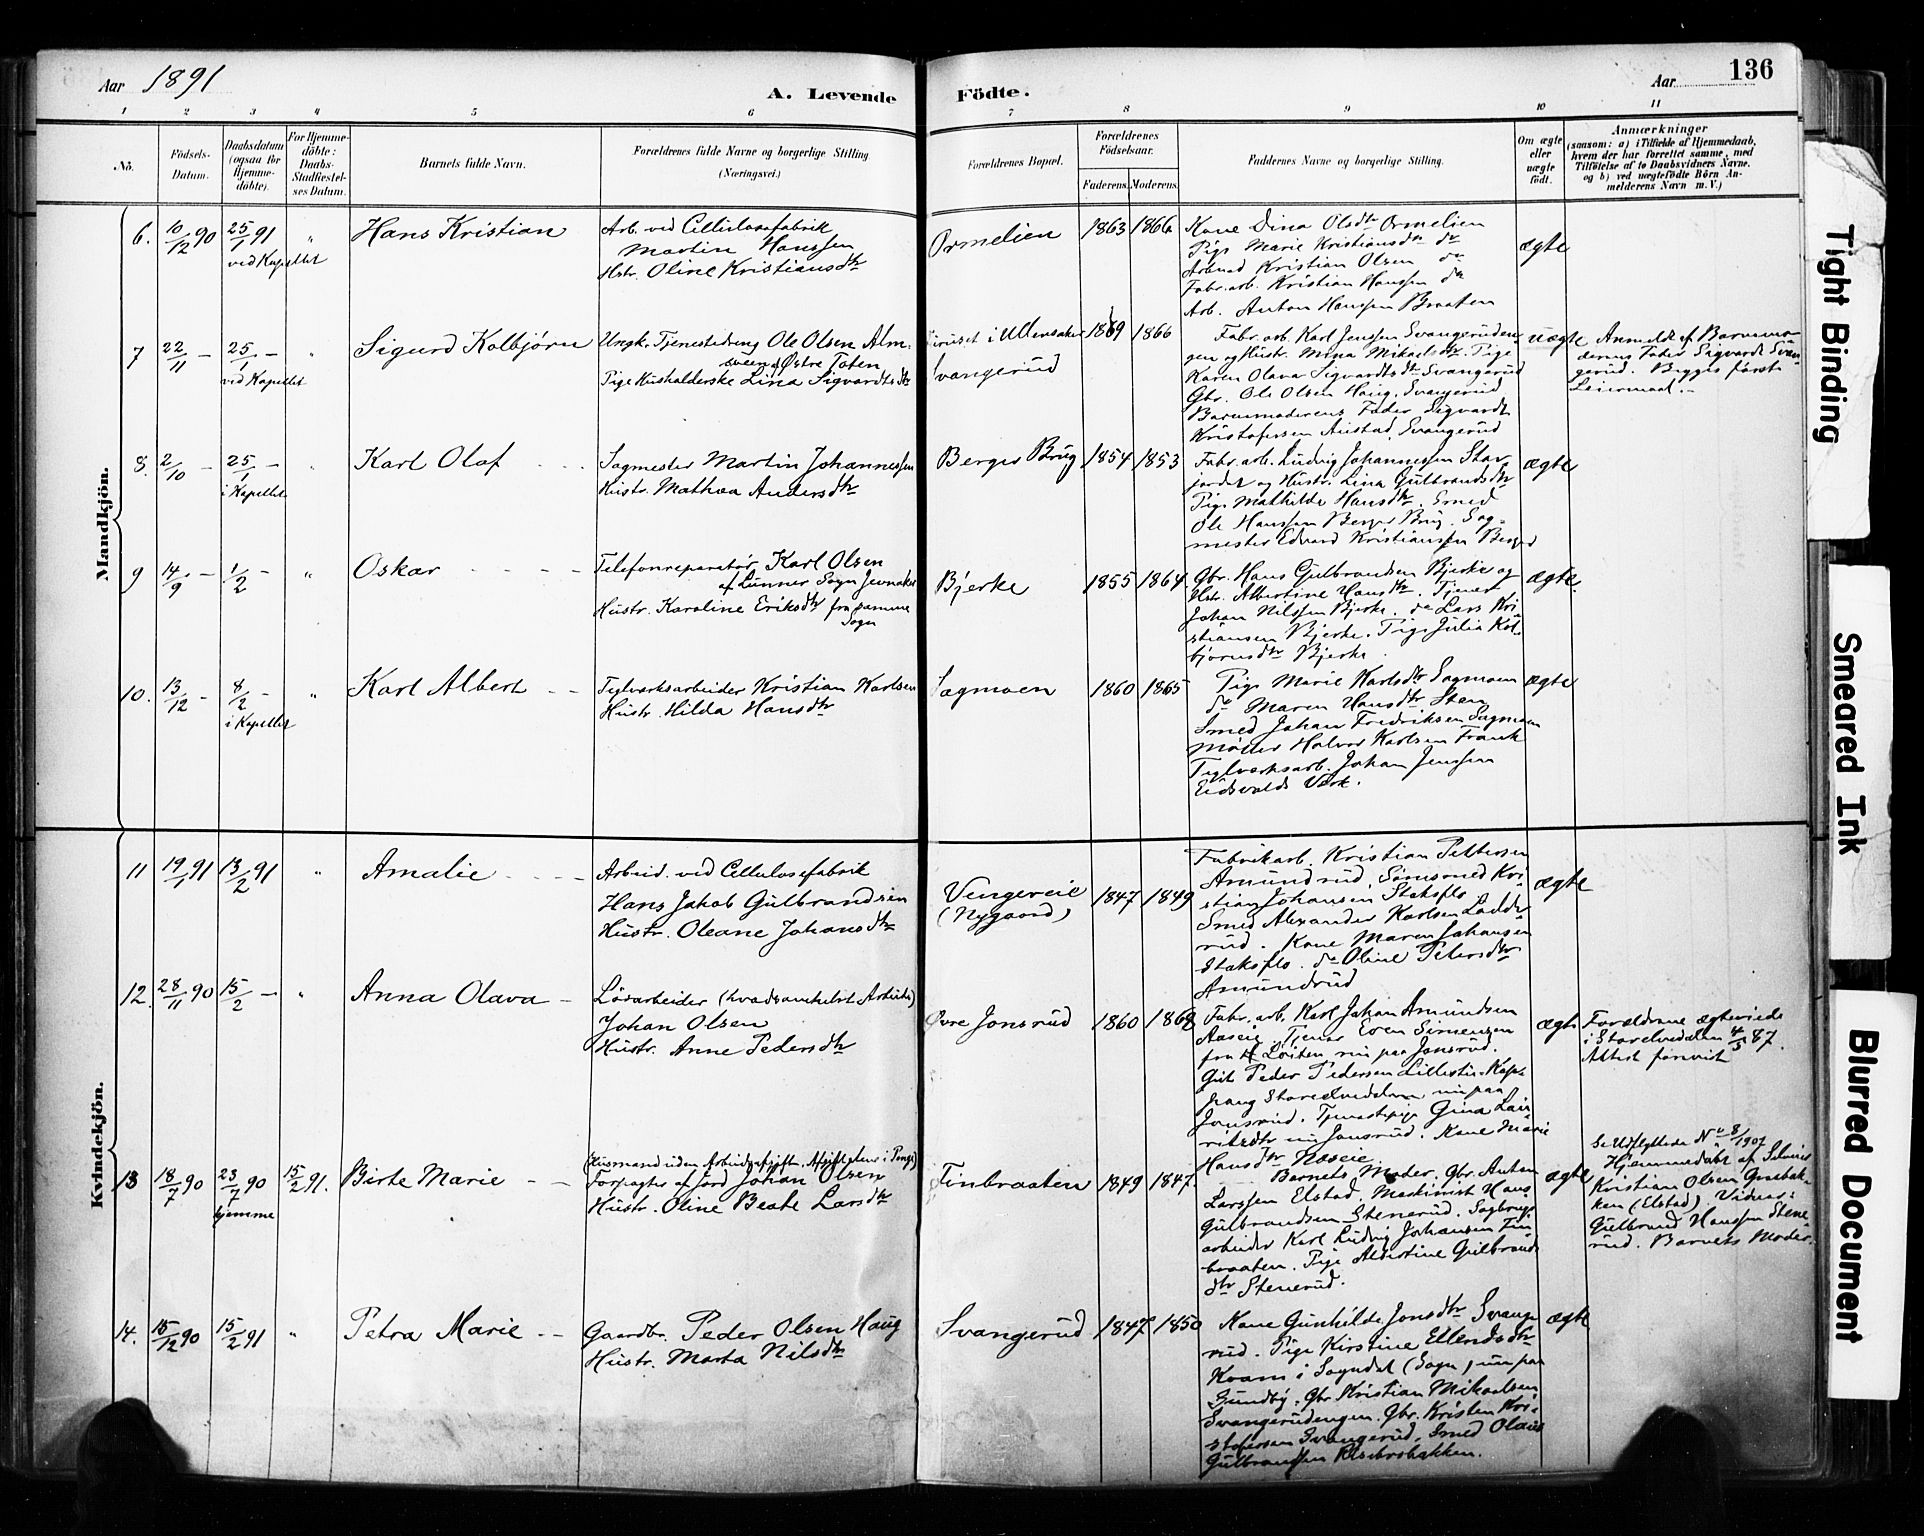 Aar 1891
A. Levende Födte.
Aar
136
1 2 3 4 5 6 7 8 9 10 11
No.
Födsels-Datum.
Daabsdatum (ogsaa for Hjemme-döbte).
For Hjemme-döbte: Daabs-Stadfæstel-ses Datum.
Barnets fulde Navn.
Forældrenes fulde Navne og borgerlige Stilling (Næringsvei.)
Forældrenes Bopæl.
Forældrenes Födselsaar.
Faderens. Moderens.
Faddernes Navne og borgerlige Stilling.
Om ægte eller uægte födt.
Anmærkninger
(saasom: a) i Tilfælde af Hjemmedaab, hvem der har forrettet samme, med Tilföielse af to Daabsvidners Navne. og b) ved uægtefödte Börn An-melderens Navn m. V.)
Mandkjön.
6. 10/12 90 25/1 91 ved Kapellet " Hans Kristian
Arb. ved Cellulosefabrik
Martin Hanssen
Hstr. Oline Kristiansdtr
Ormelien 1863 1866
Kone Dina Olsdtr Ormelien
Pige Marie Kristiansdtr do
Arbmd Kristian Olsen do
Fabr.arb. Kristian Hanssen do
Arb. Anton Hanssen Braaten
ægte
7 22/11 – 25/1 – ved Kapellet " Sigurd Kolbjørn
Ungk. Tjenestedreng Ole Olsen Alm-
sveen Østre Toten
Pige Husholderske Lina Sigvardtsdtr
i Ullensaker
Svangerud
1869 1866
Fabr. arb. Karl Jenssen Svangeruden-
gen og Hustr. Mina Mikaelsdtr. Pige
Karen Olava Sigvardtsdtr Svangerud
Gbr. Ole Olsen Haug, Svangerud
Barnemoderens Fader Sigvardt
Kristofersen Austad, Svangerud
uægte
Anmeldt af Barnemo-
derens Fader Sigvardt Svan-
gerud. Begges første
Leiermaal.
8. 2/10 – 25/1 – i Kapellet " Karl Olaf
Sagmester Martin Johannessen
Hustr. Mathea Andersdtr
Berger Brug 1854 1853
Fabr. arb. Ludvig Johannessen Stor-
jordet og Hustr. Lina Gulbrandsdtr
Pige Mathilde Hansdtr. Smed
Ole Hanssen Berger Brug. Sag-
mester Edvard Kristiansen Berger
ægte
9 14/9 – 1/2 – " Oskar
Telefonreparatør Karl Olsen
af Lunner Sogn Jevnaker
Hustr. Karoline Eriksdtr fra samme
Sogn
Bjerke 1855 1864.
Gbr. Hans Gulbrandsen Bjerke og
Hstr. Albertine Hansdtr. Tjener
Johan Nilssen Bjerke. do Lars Kri-
stiansen Bjerke. Pige Julia Kol-
bjørnsdtr Bjerke.
ægte.
10. 13/12 – 8/2 – i Kapellet " Karl Albert
Teglværksarbeider Kristian Karlsen
Hustr. Hilda Hansdtr
Sagmoen 1860 1865
Pige Marie Karlsdtr Sagmoen
do Maren Hansdtr Steen
Smed Johan Fredriksen Sagmoen
Møller Halvor Karlsen Frank
Teglværksarb. Johan Jenssen
Eidsvolds Værk.
ægte
Kvindekjön.
11 19/1 91 13/2 91 " Amalie
Arbeid. ved Cellulosefabrik
Hans Jakob Gulbrandsen
Hustr. Oleane Johansdtr
Vengereie
(Nygaard)
1847 1849
Fabrikarb. Kristian Pettersen
Amundrud, Sømsmed Kri-
stian Johansen Staksflo
Smed Alexander Karlsen Ladde-
rud. Kone Maren Johansen
Staksflo. do Oline Petersdtr
Amundrud
ægte
12. 28/11 90 15/2 – " Anna Olava
Løsarbeider (hvadsomhelst Arbeide)
Johan Olsen
Hustr. Anne Pedersdtr
Øvre Jonsrud 1860 1868
Fabr. arb. Karl Johan Amundsen
Aaseie. Tjener Even Simensen
fra Løiten nu paa Jonsrud.
Gut Peder Pedersen Lillestu-Kop-
pang Storelvedalen nu paa
Jonsrud. Tjenestepige Gina Lau-
ritzdtr nu Jonsrud. Kone Marie
Hansdtr Næseie
ægte
Forældrene ægteviede
i Storelvedalen 4/5 87.
Attest forevist
13 18/7 90 23/7 90 hjemme 15/2 91. Birte Marie
(Husmand uden Arbeidsafgift, Afgift svares i Penge)
Forpagter af Jord Johan Olsen
Hustr. Oline Beate Larsdtr
Finbraaten 1849 1847.
Barnets Moder. Gbr. Anton
Larssen Elstad. Maskinist Hans
Gulbrandsen Stenerud. Sagbrugs-
arbeider Karl Ludvig Johansen Fin-
braaten. Pige Albertine Gulbrands-
dtr Stenerud.
ægte
Se Udflyttede No 8/1907
Hjemmedøbt af
Kristian Olsen Grusbak-
ken (Elstad). Vidner:
Gulbrand Hanssen Stene-
rud. Barnets Moder.
14. 15/12 90 15/2 91 " Petra Marie
Gaardbr. Peder Olsen Haug
Hustr. Marta Nilsdtr
Svangerud 1847 1850
Kone Gunhilde Jonsdtr Svange-
rud. Pige Kirstine Ellendsdtr
Kvam i Sogndal (Sogn) nu paa
Sundby. Gbr. Kristian Mikaelsen
Svangerudengen. Gbr. Kristen Kri-
stofersen Svangerud. Smed Olaus
Gulbrandsen
ægte
Tight Binding
Smeared Ink
Blurred Document